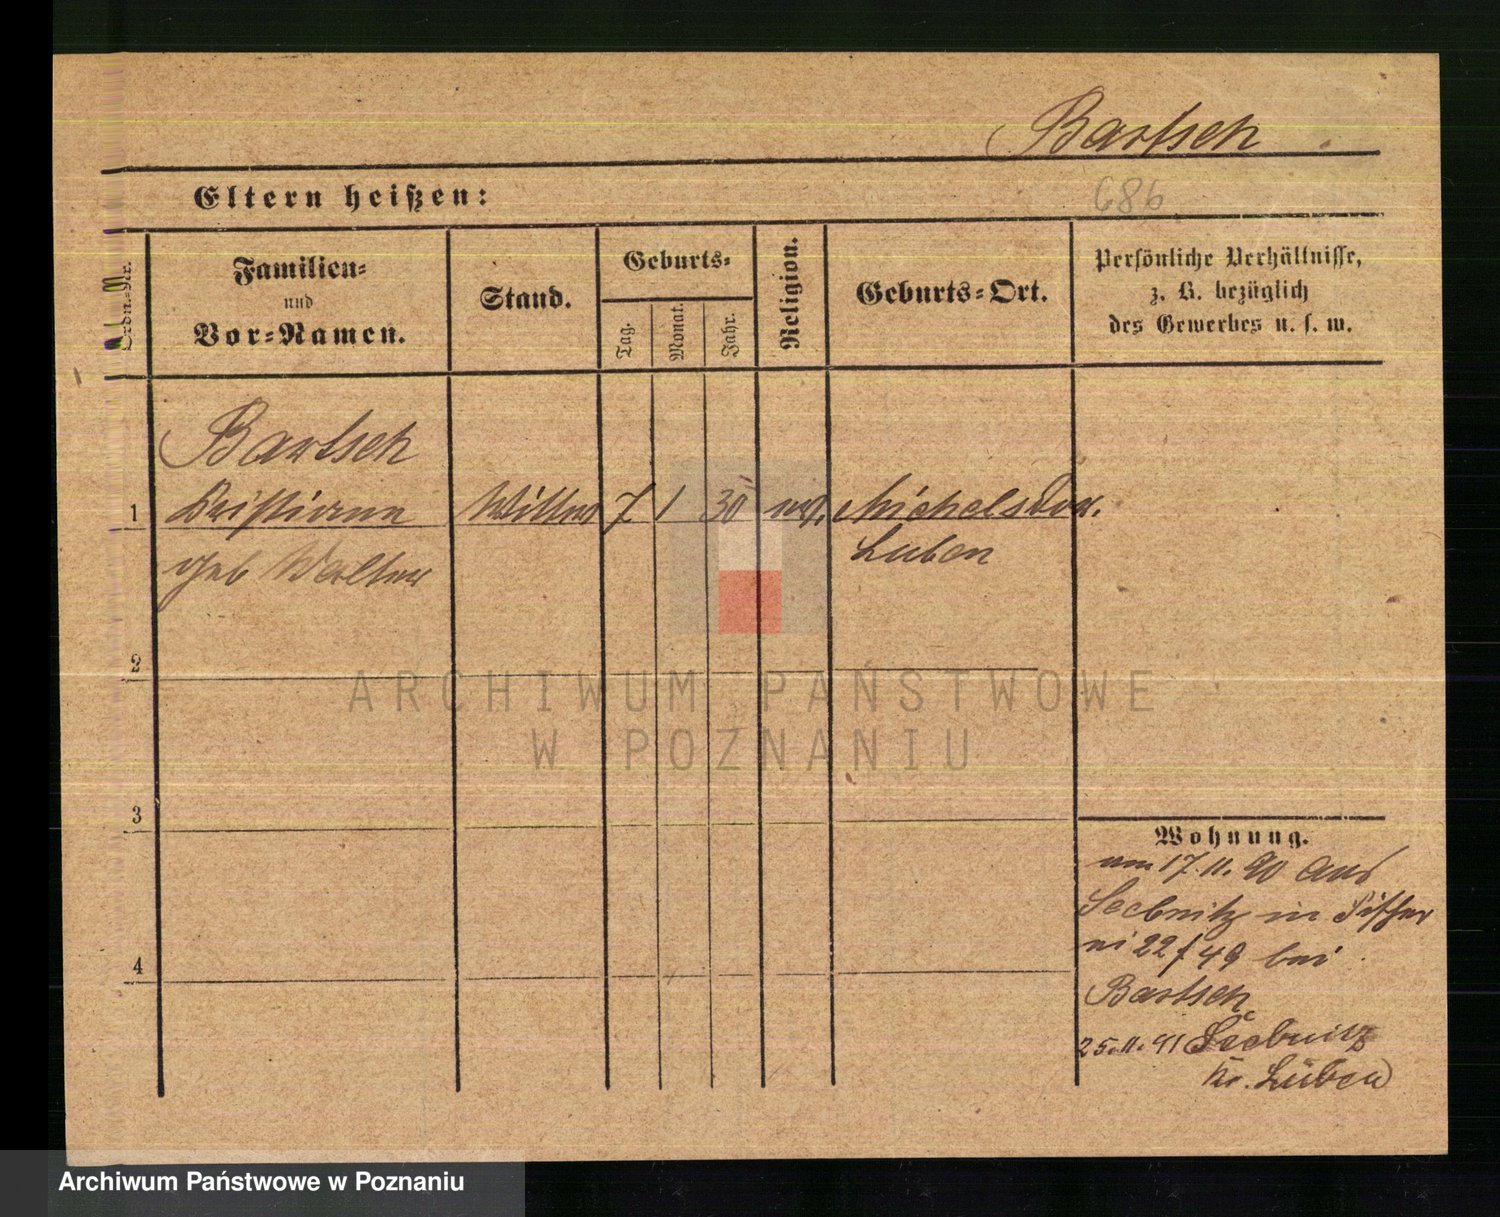 Bartsch
686
Eltern heißen:
Ordn.-Nr.
Familien-
und
Vor-Namen.
Stand.
Geburts-
Tag.
Monat.
Jahr.
Religion.
Geburts-Ort.
Persönliche Verhältnisse,
z. B. bezüglich
des Gewerbes u. s. w.
Bartsch
1 Kristiane Wittwe 7 1 30 ev. Michelsdor.
geb Walter Luben
2
ARCHIWUM PAŃSTWOWE
W POZNANIU
3
4
Wohnung.
am 17.11.90 aus
Seebnitz in
22/49 bei
Bartsch
25.11.91 Seebnitz
Kr. Lüben
Archiwum Państwowe w Poznaniu